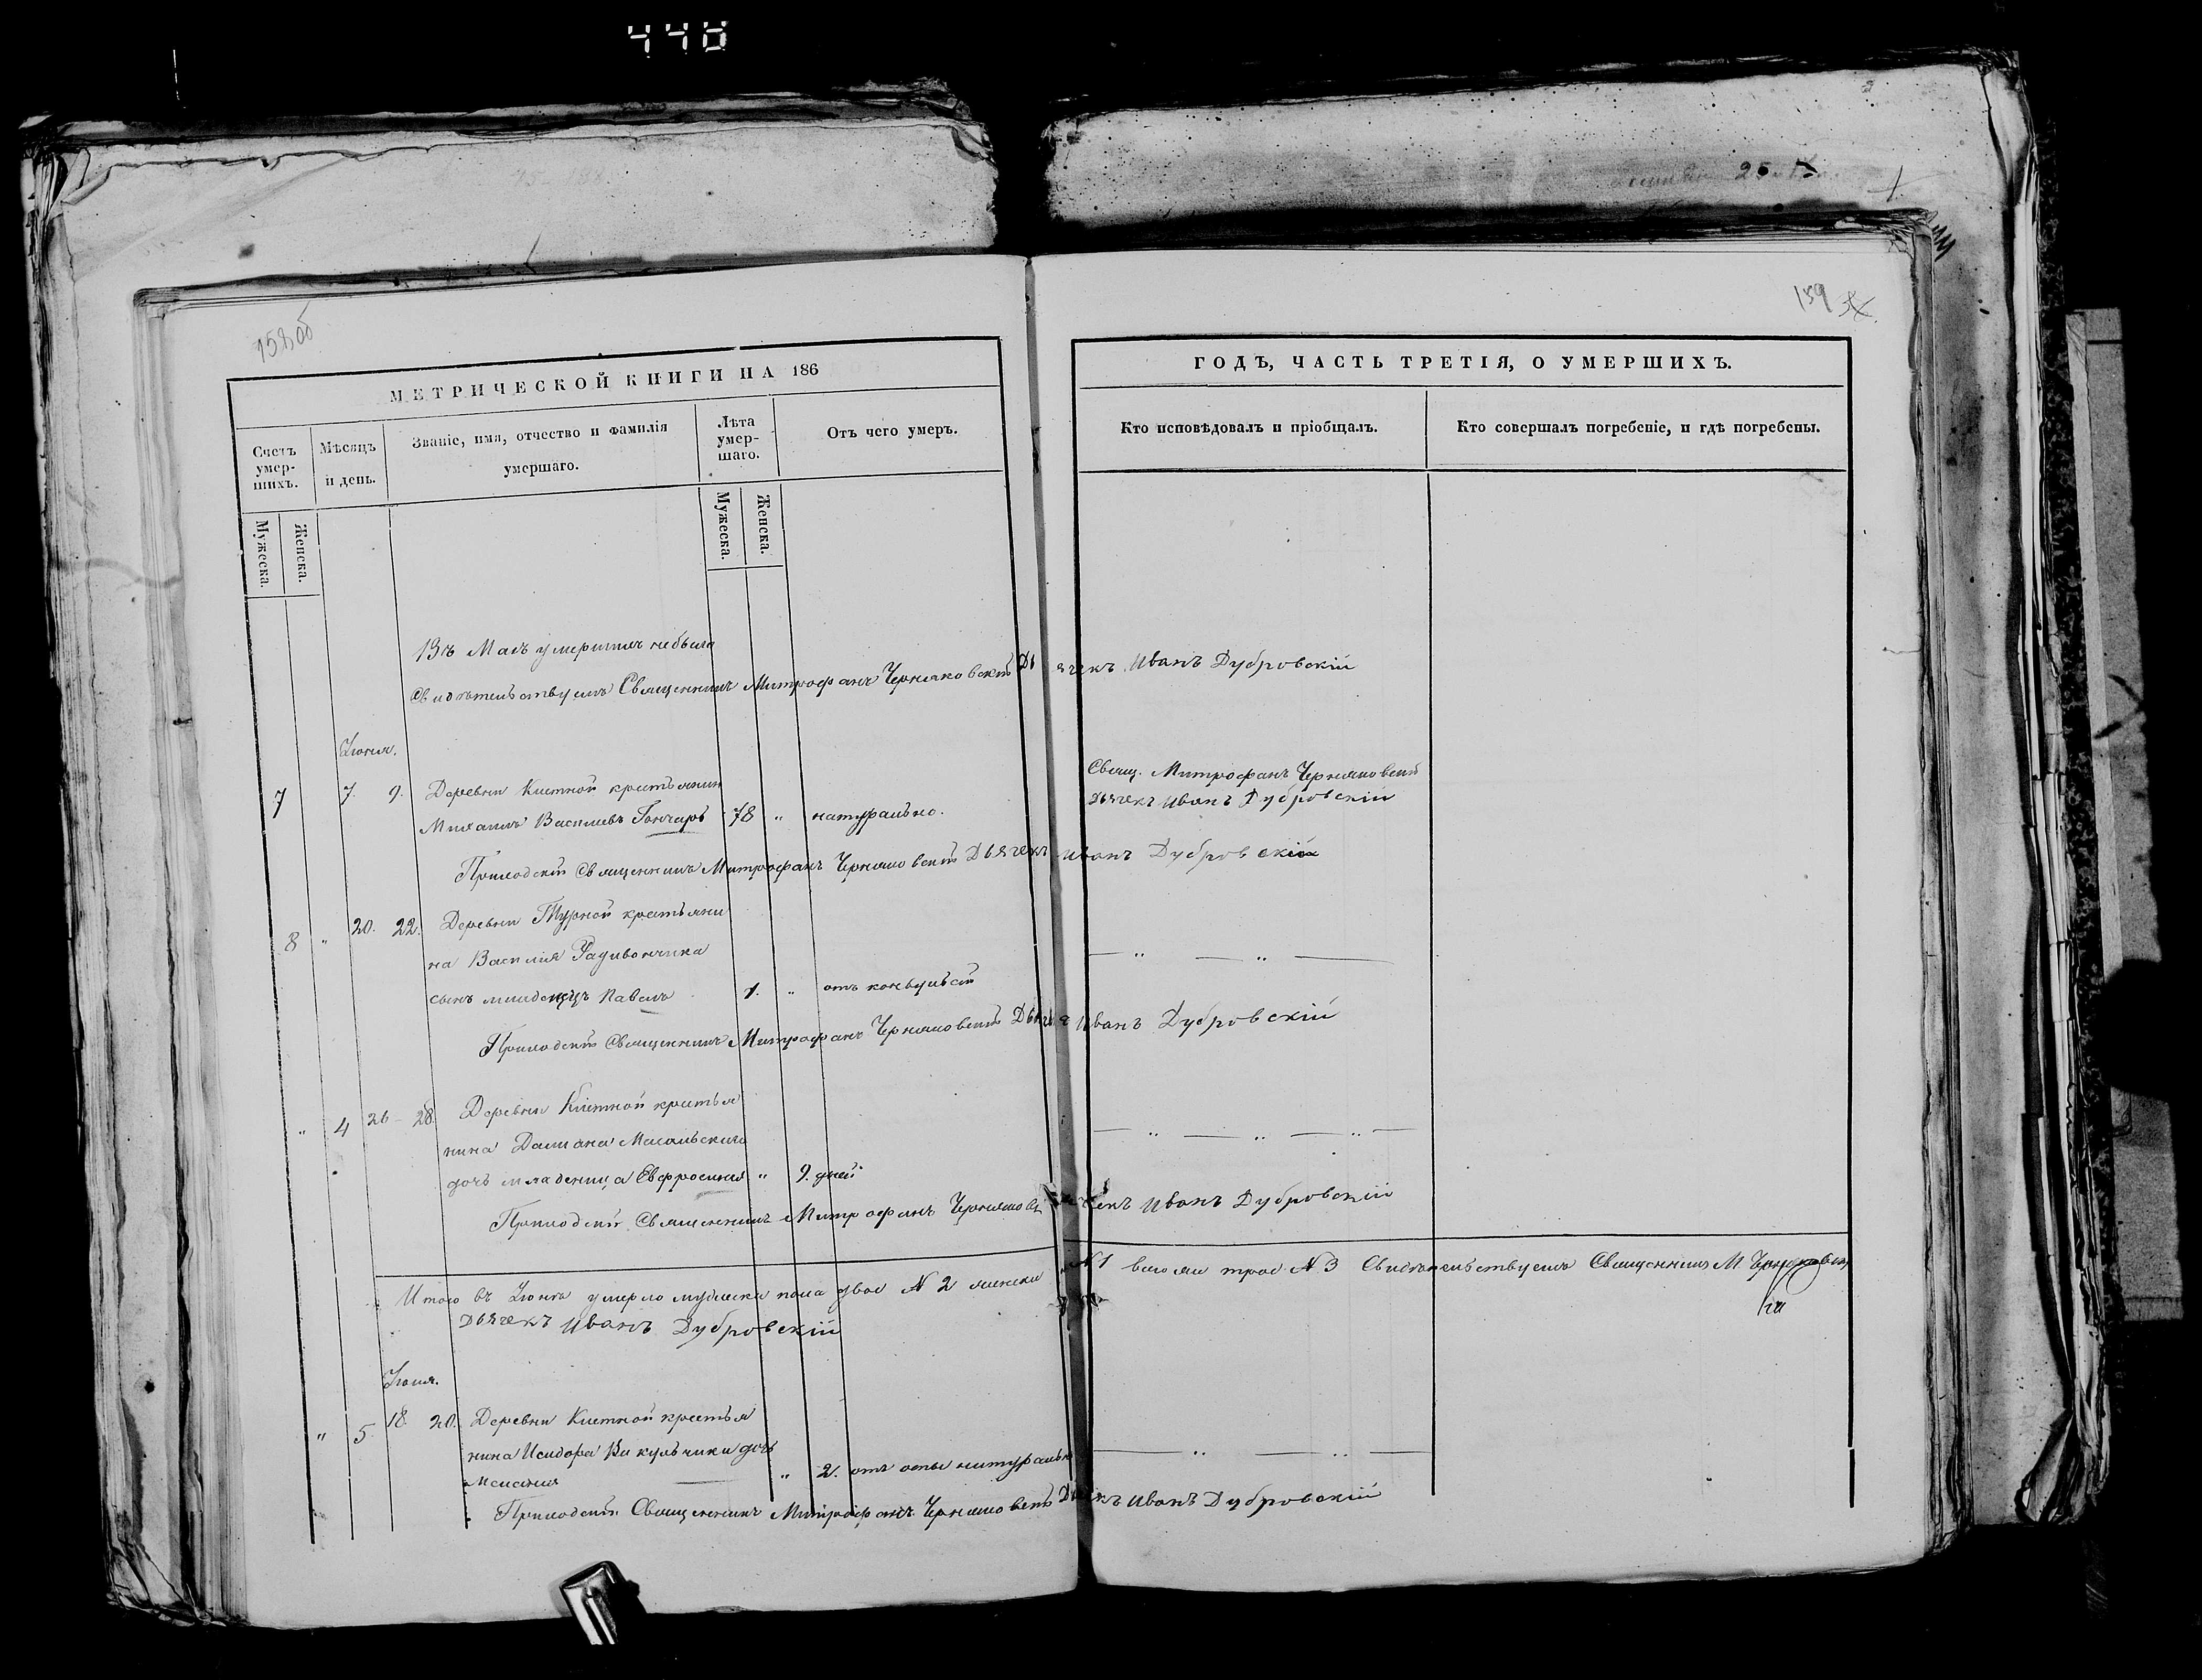 440
158об
159
МЕТРИЧЕСКОЙ КНИГИ НА 186
ГОДЪ, ЧАСТЬ ТРЕТІЯ, О УМЕРШИХЪ.
Счетъ умер-шихъ.
Мѣсяцъ и день.
Званіе, имя, отчество и фамилія умершаго.
Лѣта умер-шаго.
Отъ чего умеръ.
Кто исповѣдовалъ и пріобщалъ.
Кто совершалъ погребеніе, и гдѣ погребены.
Мужеска.
Женска.
Мужеска.
Женска.
Въ Маѣ умершихъ небыло
Свидѣтельствуемъ Священникъ Митрофанъ Черняковскій Дьячекъ Иванъ Дубровскій
Іюня.
7 7. 9. Деревни Клетной крестьянин
Михаилъ Васильевъ Гончаръ 78 " натурально.
Свящ. Митрофанъ Черняковскій
Дьячекъ Иванъ Дубровскій
Приходскій Священникъ Митрофанъ Черняковскій Дьячекъ Иванъ Дубровскій
8 " 20. 22. Деревни Турной крестьяни
на Василія Радивончика
сынъ младенецъ Павелъ 1. " отъ конвульсій
Приходскій Священникъ Митрофанъ Черняковскій Дьячекъ Иванъ Дубровскій
" 4 26 - 28. Деревни Клетной крестья
нина Даміана Масальскаго
дочь младеница Евфросинія " 9. дней
Приходскій Священникъ Митрофанъ Черняковс Дьячекъ Иванъ Дубровскій
Итого въ Іюнѣ умерло мужеска пола двое N 2 женска N 1 всего же трое N 3 Свидѣтельствуемъ Священникъ М Черняковскій
Дьячекъ Иванъ Дубровскій
Іюля.
" 5. 18. 20. Деревни Клетной крестья
нина Исидора Викульчика дочь
" 2. отъ оспы натуральн
Приходскій Священникъ Митрофанъ Черняковскій Дьячекъ Иванъ Дубровскій